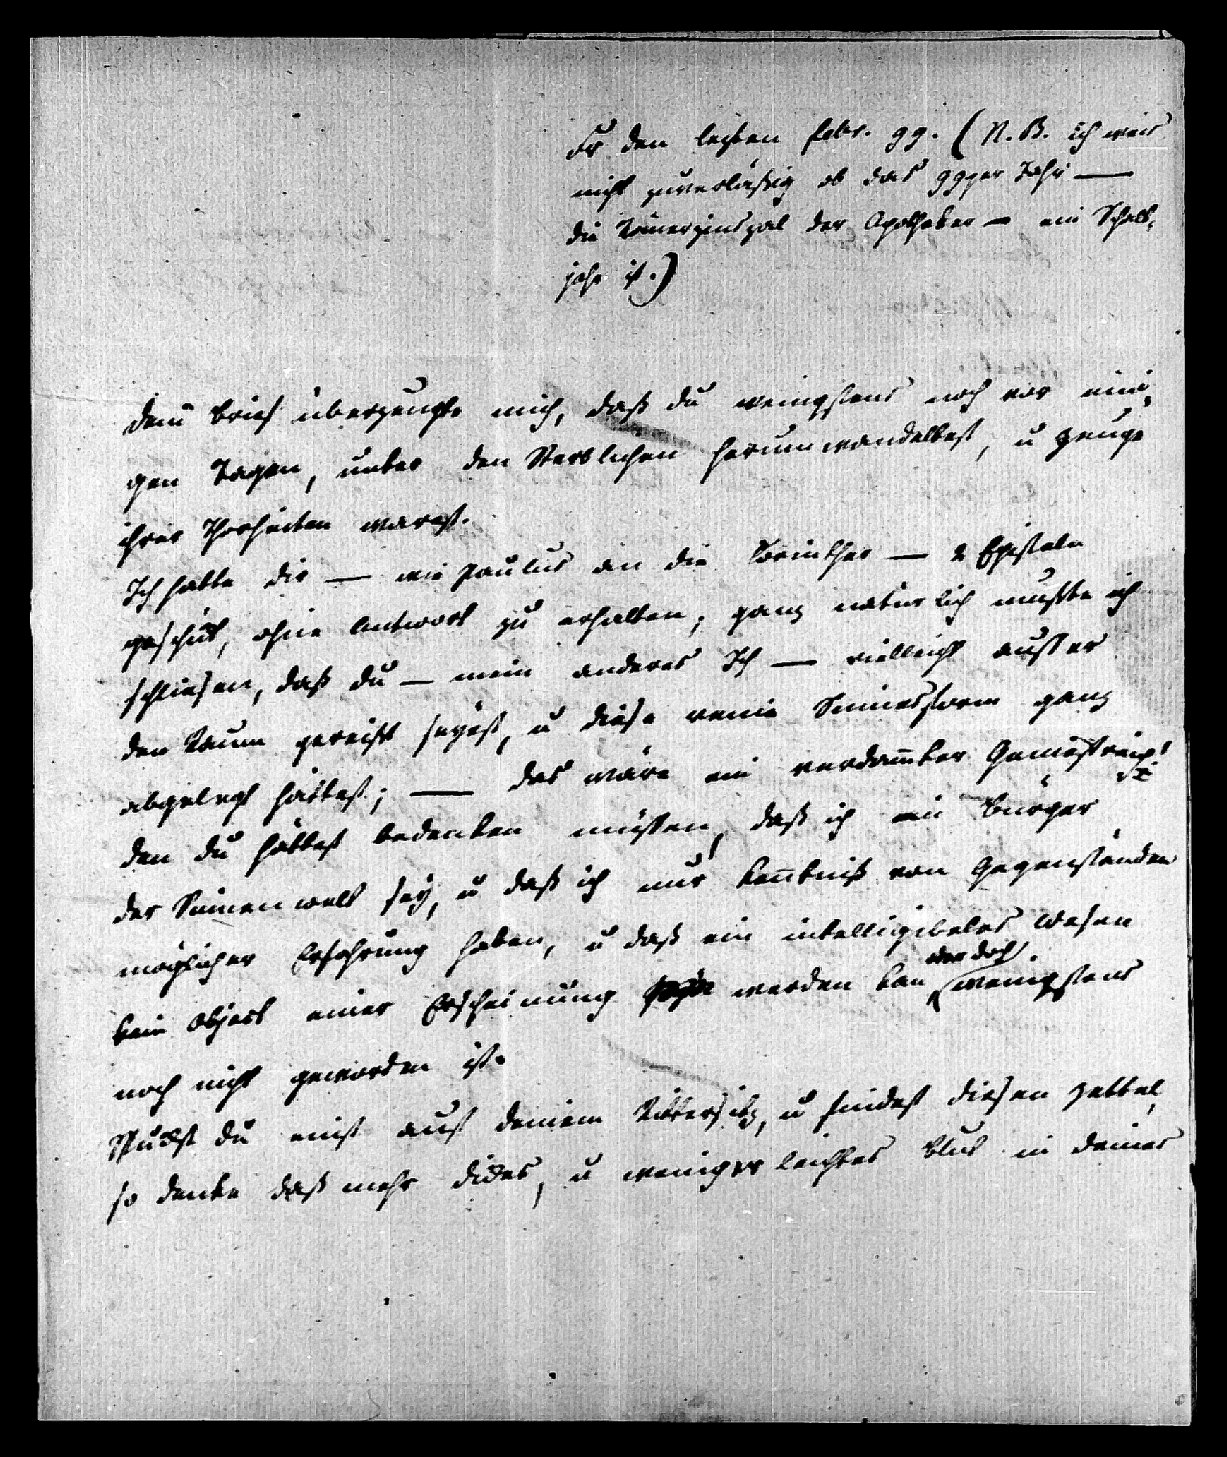 den lezten febr. 99. (N.B. Ich weis
nicht zuverläßig ob das 99ger Jahr —
die der Apotheker — ein Schalt-
jahr ist.)
Dein Brief überzeugte mich, daß du wenigstens noch vor eini-
gen Tagen, unter den Sterblichen herumwandeltest, u Zeuge
ihrer Thorheiten warest.
Ich hatte dir — wie Paulus an die Korinther — 2 Episteln
geschikt, ohne Antwort zu erhalten, ganz natürlich mußte ich
schliesen, daß du — mein anderes Ich — vielleicht ausser
den Raum gereißt seyest, u diese reine Sinnesform ganz
abgelegt hättest; — das wäre ein verdam̅ter Geniestreich!
den du hättest bedenken müssen, daß ich ein Bürger
der Sinnenwelt sey, u daß ich nur Ken̅tniß von Gegenständen
möglicher Erfahrung haben, u daß ein intelligibeles Wesen
kein Object einer Erscheinung werden kan oder doch wenigstens
noch nicht geworden ist.
Spuckst du einst auf deinem Rittersitz, u findest diesen Zettel,
so denke daß mehr dickes, u weniger leichtes Blut in deiner